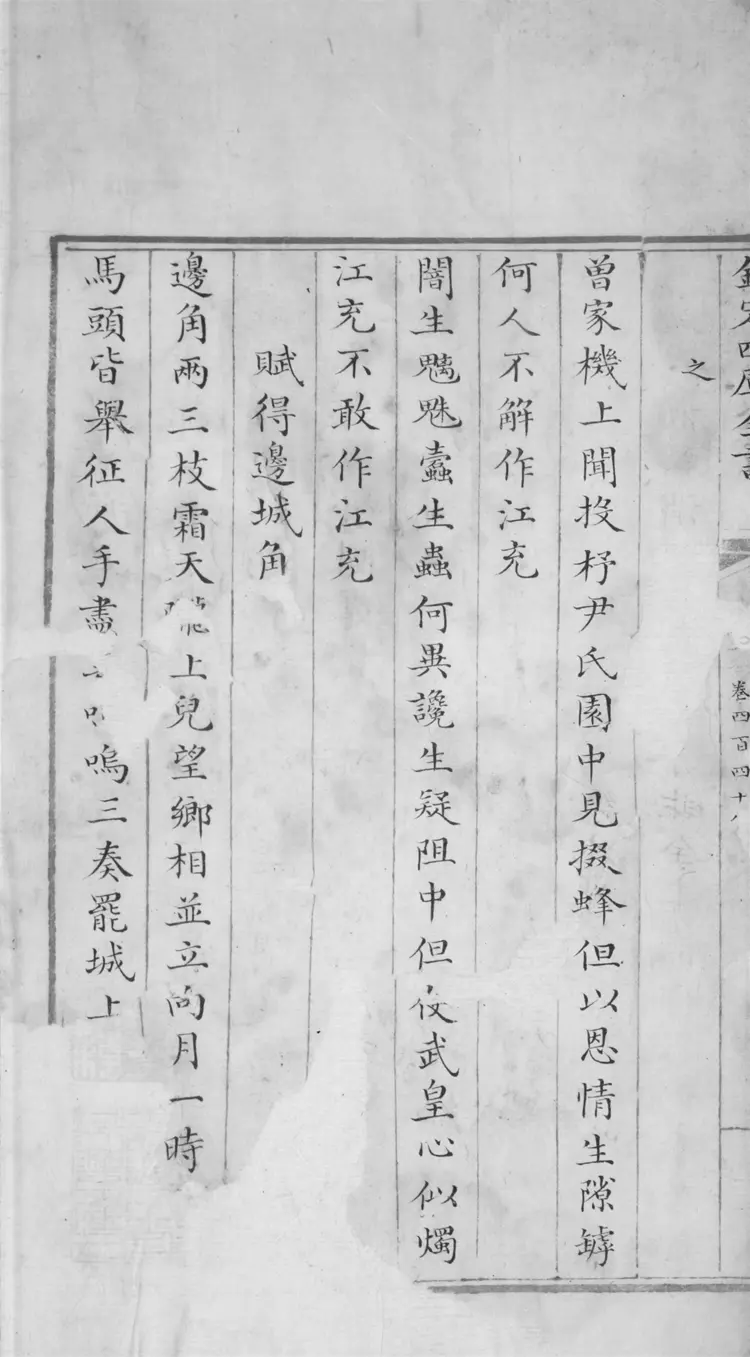 欽定四庫全書
卷四百四十
之
曾家機上聞投杼尹氏園中見掇蜂但以恩情生隙罅
何人不解作江充
闇生魑魅蠧生蟲何異讒生疑阻中但使武皇心似燭
江充不敢作江充
賦得邊城角
邊角兩三枝霜天隴上兒望鄉相並立向月一時
馬頭皆舉征人手盡嗚三奏罷城上